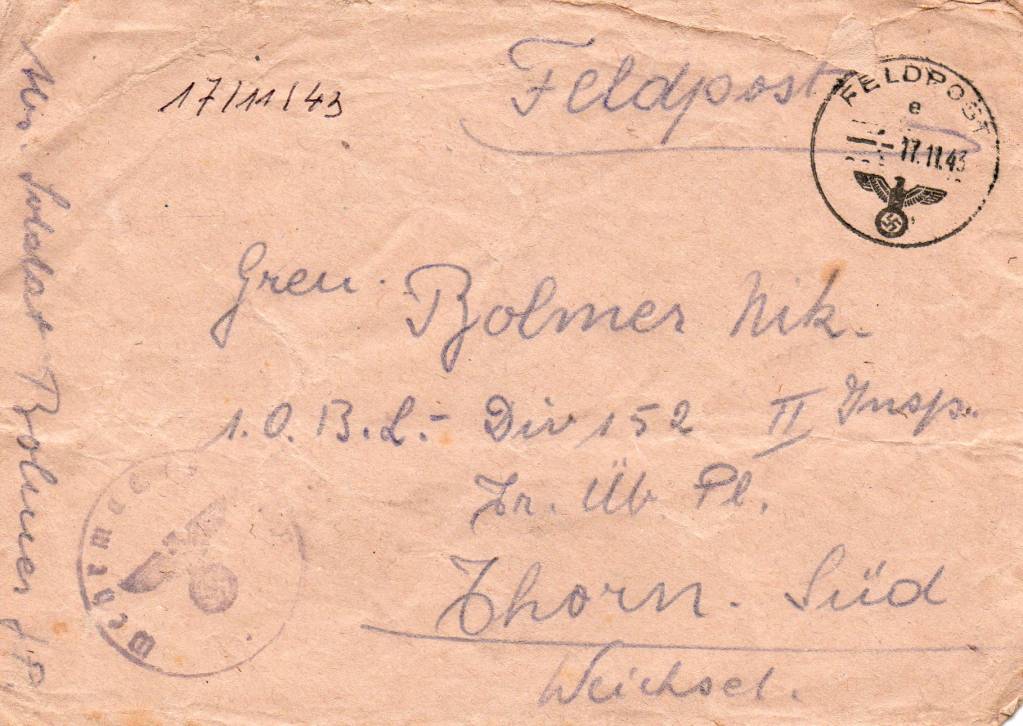 Feldpost
17/11/43
FELDPOST
e
17.11.43
Gren. Bolmer Nik.
1.O.B.L.- Div 152 II Insp.
Tr. Üb. Pl.
Thorn. Süd
Weichsel.
Soldat Bolmer J.P.